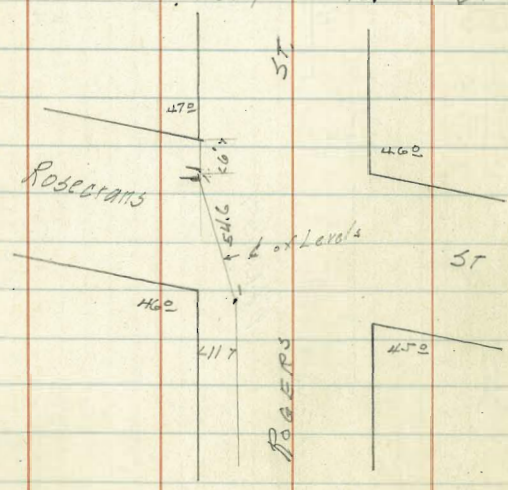 ST.
47º
46º
<6'>
Rosecrans
54.6
℄ of Levels
ST
46º
<11'>
45º
ROGERS